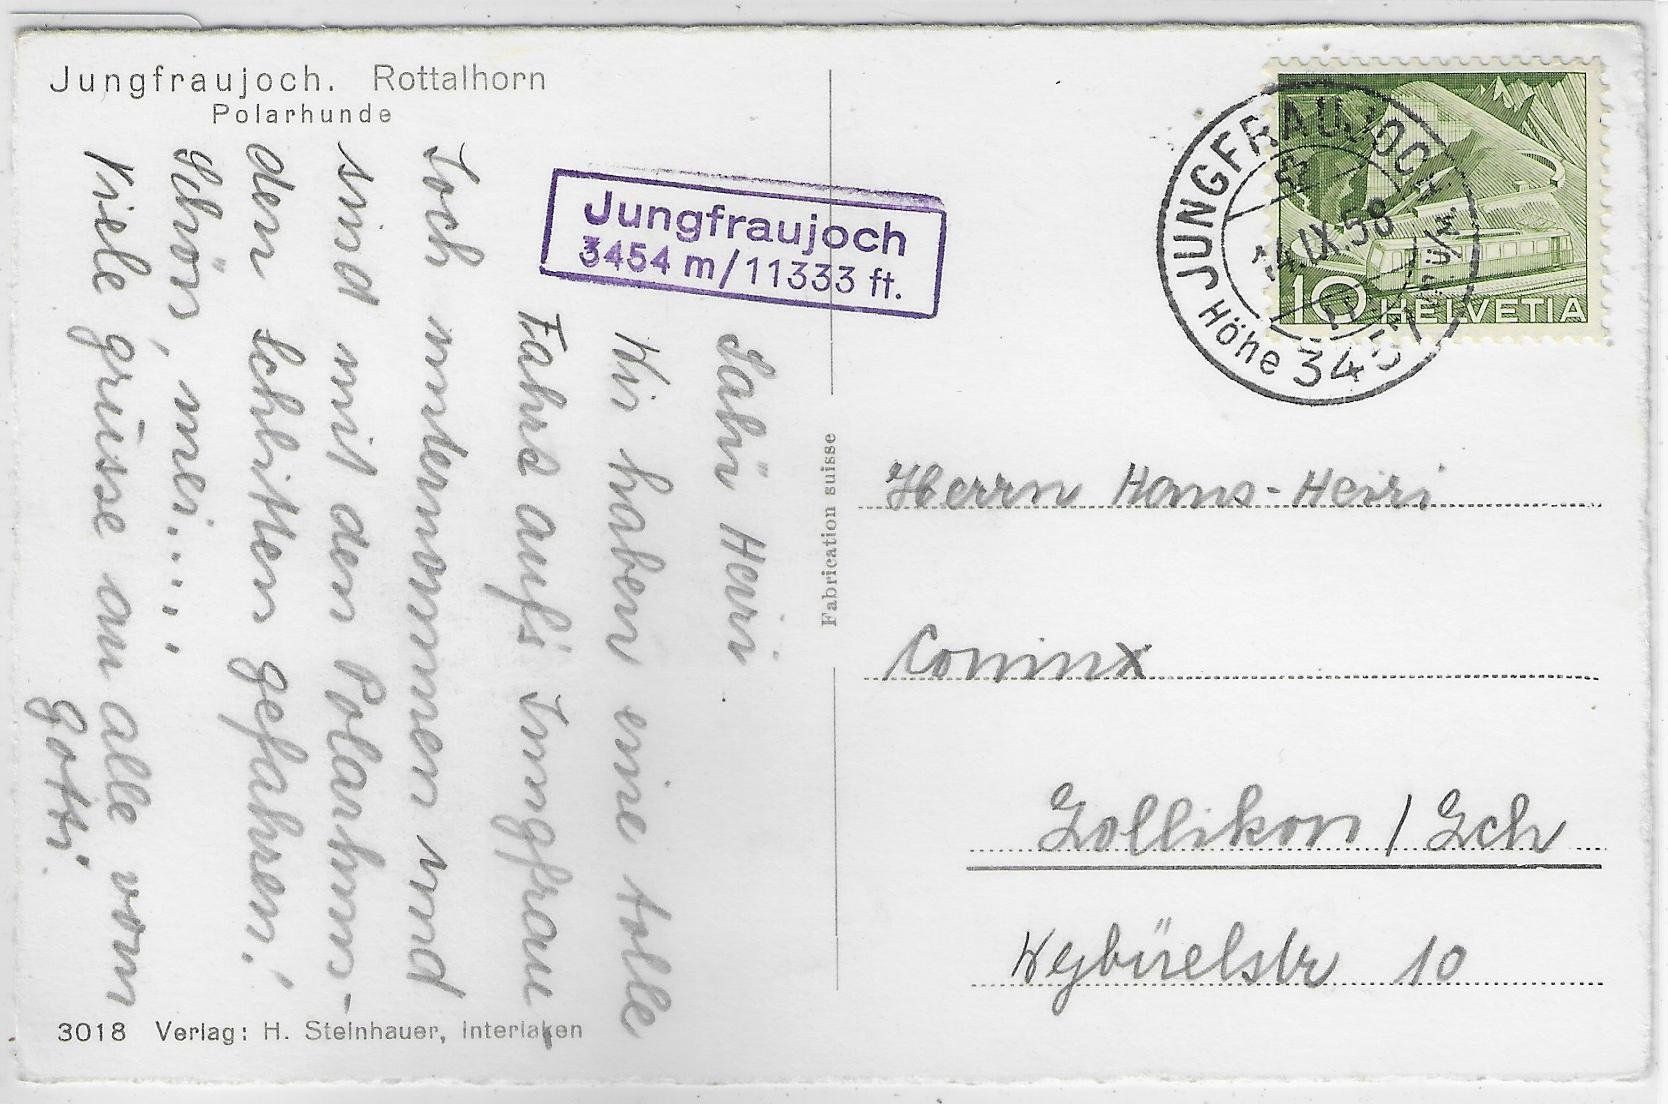 Jungfraujoch. Rottalhorn
Polarhunde
Jungfraujoch
3454 m/11333 ft.
JUNGFRAUJOCH
Höhe 3457
IX.58
10 HELVETIA
Salü Heiri
Wir haben eine tolle
Fahrt aufs Jungfrau
Joch unternommen und
sind mit den Polarhun-
den Schlitten gefahren!
Schön, mei....,,
Viele grüsse an alle vom
Gotti.
Fabrication suisse
Herrn Hans-Heiri
Coninx
Zollikon / Zch
Wybüelstr 10
3018 Verlag: H. Steinhauer, Interlaken